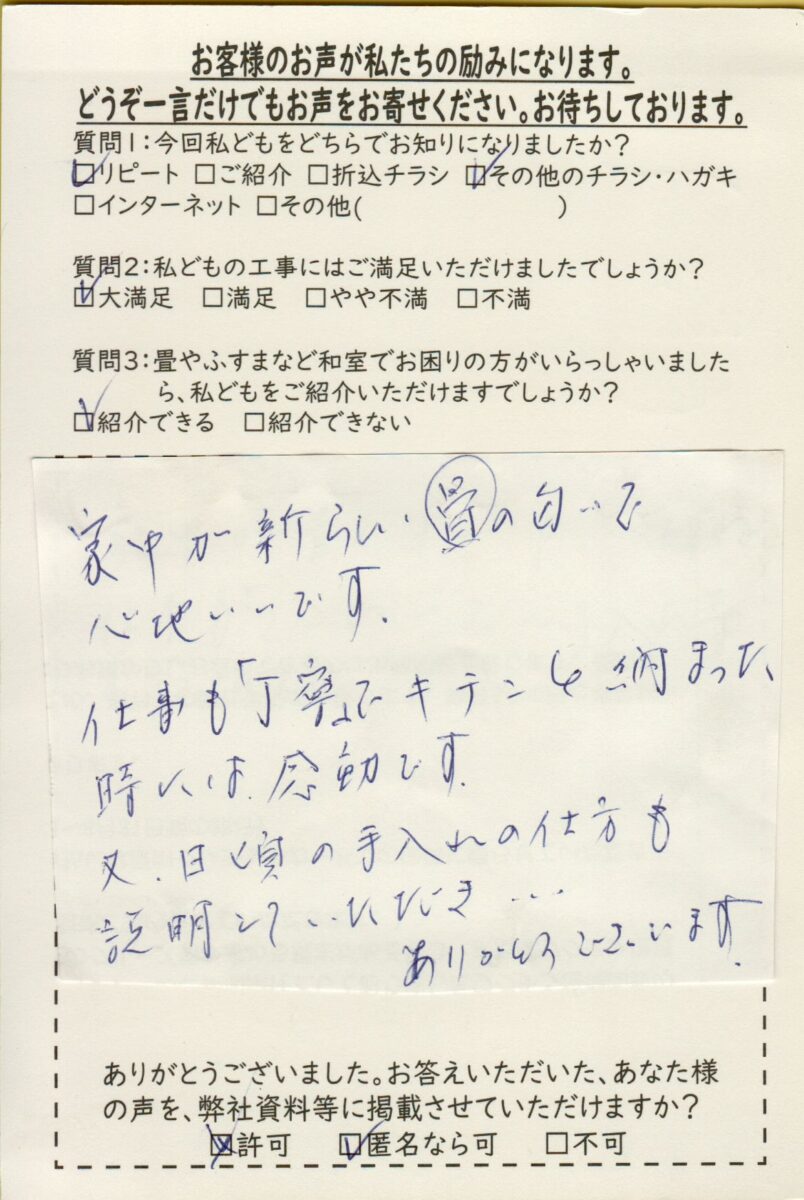 お客様のお声が私たちの励みになります。
どうぞ一言だけでもお声をお寄せください。お待ちしております。
質問1:今回私どもをどちらでお知りになりましたか?
☑リピート □ご紹介 □折込チラシ ☑その他のチラシ・ハガキ
□インターネット □その他( )
質問2:私どもの工事にはご満足いただけましたでしょうか?
☑大満足 □満足 □やや不満 □不満
質問3:畳やふすまなど和室でお困りの方がいらっしゃいました
ら、私どもをご紹介いただけますでしょうか?
☑紹介できる □紹介できない
家中が新らしい畳の匂いで
心地いいです.
仕事も「丁寧」でキチンと納まった、
時には.感動です.
又.日頃の手入れの仕方も
説明していただき...
ありがとうございます.
ありがとうございました。お答えいただいた、あなた様
の声を、弊社資料等に掲載させていただけますか?
☒許可 ☑匿名なら可 □不可